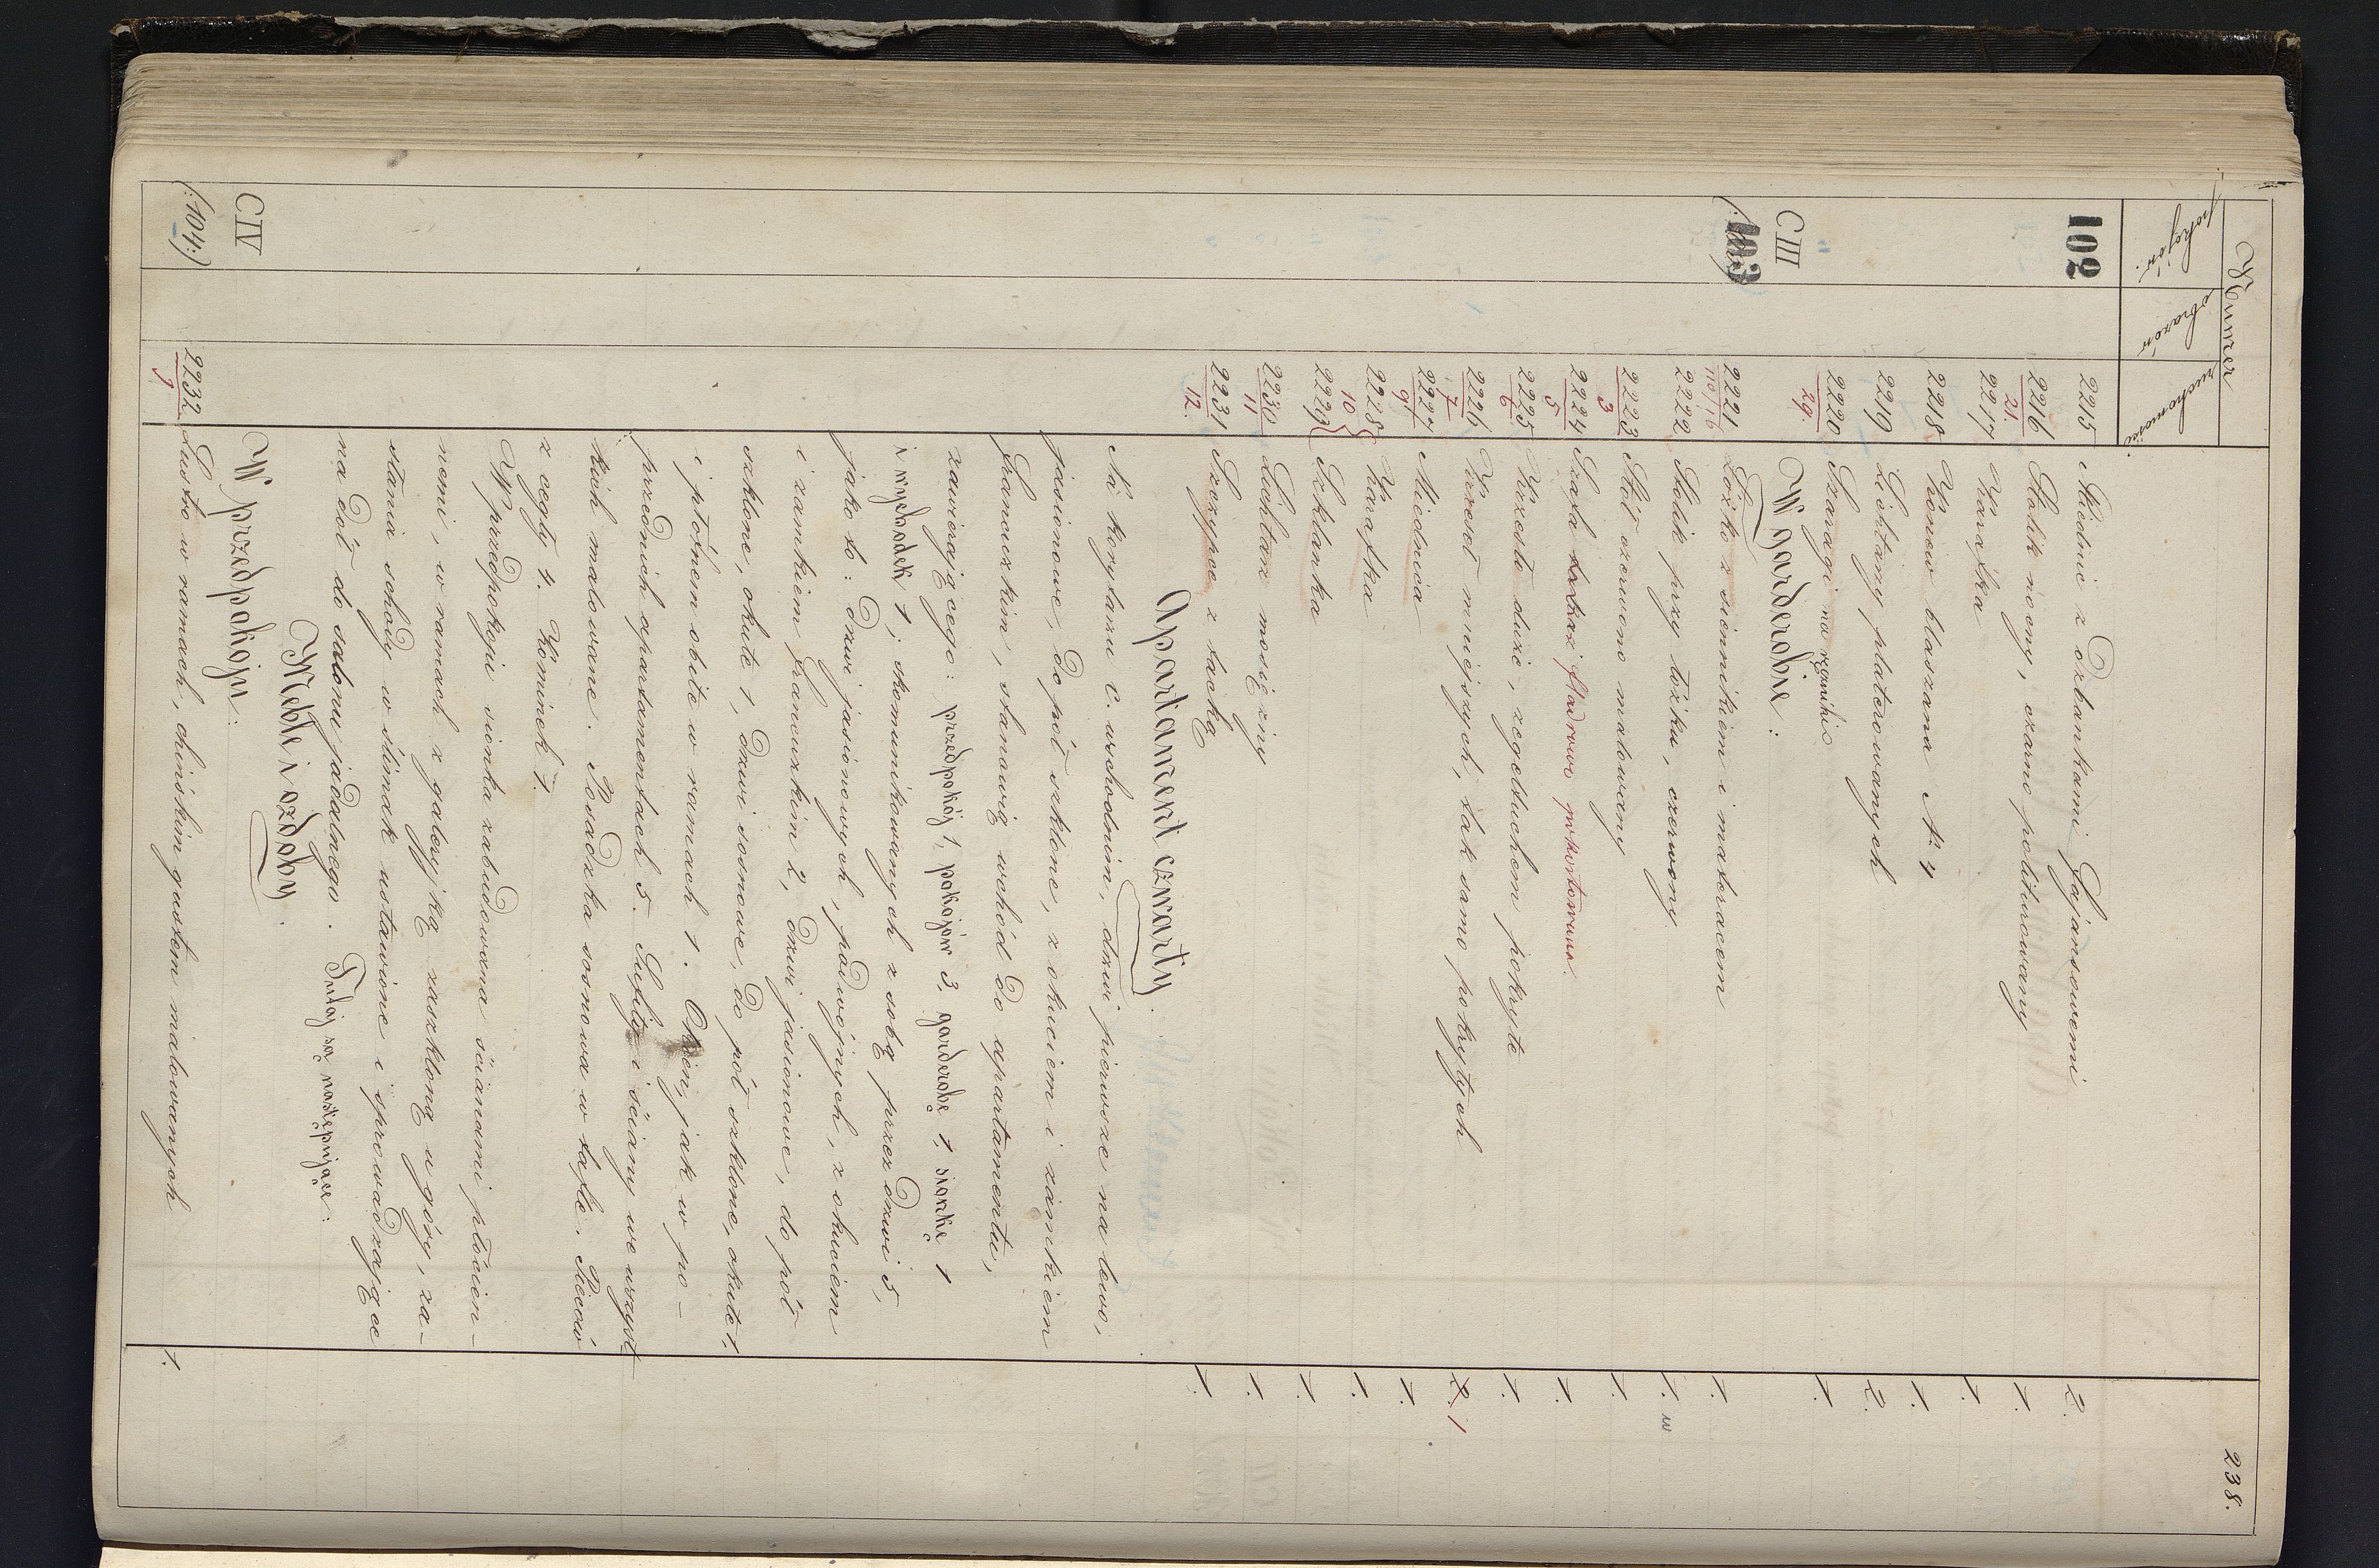 238.
Numer
pokojów. obrazów ruchomości.
102 2215 Miednic z dzbankami fajansowemi 2.
2216 21. Stolik nocny, czarno politurowany 1.
2217 Karafka 1.
2218 Konew blaszana № 4 1.
2219 Lichtarzy platerowanych 2.
2220 29. Szaragi na ręczniki 1.
CIII (:103:) W garderobie:
2221 110/116 Łóżko z siennikiem i materacem 1.
2222 Stolik przy łóżku, czerwony 1.
2223 3 Stół czerwono malowany 1.
2224 5 Szafa fladrowo pokostowana. 1.
2225 6 Krzesło duże, cegeltuchem pokryte 1.
2226 7 Krzeseł mniejszych, tak samo pokrytych 2. 1
2227 9 Miednica 1.
2228 10 Karafka 1.
2229 Szklanka 1.
2230 11 Lichtarz mosiężny 1.
2231 12. Szczypce z tacką 1.
Apartament czwarty.
Na korytarzu C. wschodnim, drzwi pierwsze na lewo,
jasionowe, do pół szklone, z okuciem i zamkiem
francuzkim, stanowią wchód do apartamentu,
zawierającego: przedpokój 1, pokojów 3, garderobę 1, sionkę 1
i wychodek 1; skomunikowanych z sobą przez drzwi 5,
jako to: drzwi jasionowych, podwójnych, z okuciem
i zamkiem francuzkim 2, drzwi jasionowe, do pół
szklone, okute 1, drzwi sosnowe, do pół szklone, okute 1,
i płótnem obite w ramach 1. Okien, jak w po-
przednich apartamentach 5. Sufity i ściany we wszyst-
kich malowane. Posadzka sosnowa w tafle. Pieców
z cegły 4. Kominek 1.
W przedpokoju sionka zabudowana ścianami płócien-
nemi, w ramach z galeryjką zaszkloną u góry, za-
stania schody w ślimak ustawione i sprowadzające
na dół do salonu jadalnego. Tutaj są następujące:
Meble i ozdoby.
CIV (:104:) W przedpokoju:
2232 1 Lustro w ramach, chińskim gustem malowanych 1.